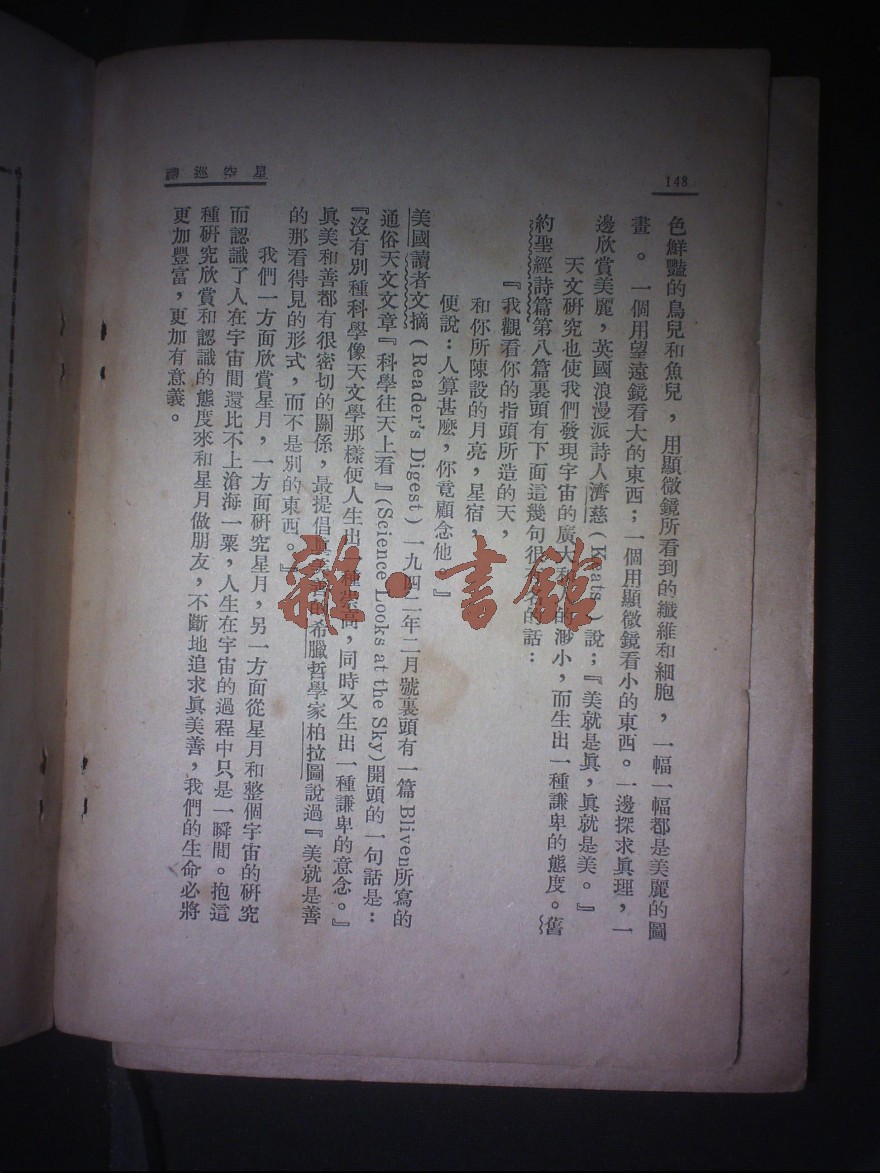 148
星空巡禮
色鮮豔的鳥兒和魚兒，用顯微鏡所看到的纖維和細胞，一幅一幅都是美麗的圖
畫。一個用望遠鏡看大的東西；一個用顯微鏡看小的東西。一邊探求眞理，一
邊欣賞美麗，英國浪漫派詩人濟慈(Keats)說；『美就是眞，眞就是美。』
天文硏究也使我們發現宇宙的廣大和人的渺小，而生出一種謙卑的態度。舊
約聖經詩篇第八篇裏頭有下面這幾句很有名的話：
『我觀看你的指頭所造的天，
和你所陳設的月亮，星宿，
便說：人算甚麽，你竟顧念他』
美國讀者文摘(Reader's Digest)一九四二年二月號裏頭有一篇Bliven所寫的
通俗天文文章『科學往天上看』(Science Looks at the Sky)開頭的一句話是：
『沒有別種科學像天文學那樣使人生出一種崇高，同時又生出一種謙卑的意念。』
眞美和善都有很密切的關係，最提倡眞美善的希臘哲學家柏拉圖說過『美就是善
的那看得見的形式，而不是別的東西。』
我們一方面欣賞星月，一方面硏究星月，另一方面從星月和整個宇宙的硏究
而認識了人在宇宙間還比不上滄海一粟，人生在宇宙的過程中只是一瞬間。抱這
種硏究欣賞和認識的態度來和星月做朋友，不斷地追求眞美善，我們的生命必將
更加豐富，更加有意義。
雜·書館